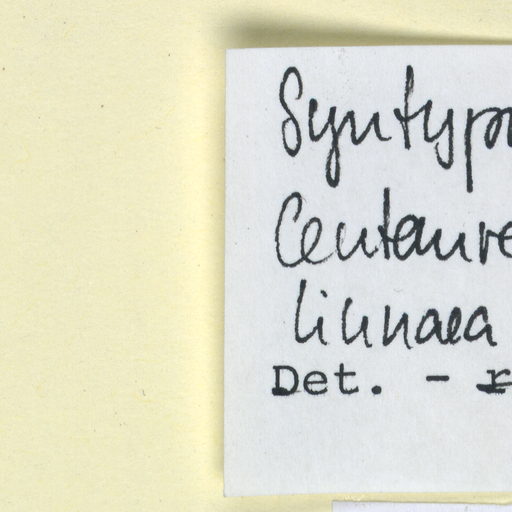 Syntypu
Centaure
linnaea
Det. - r